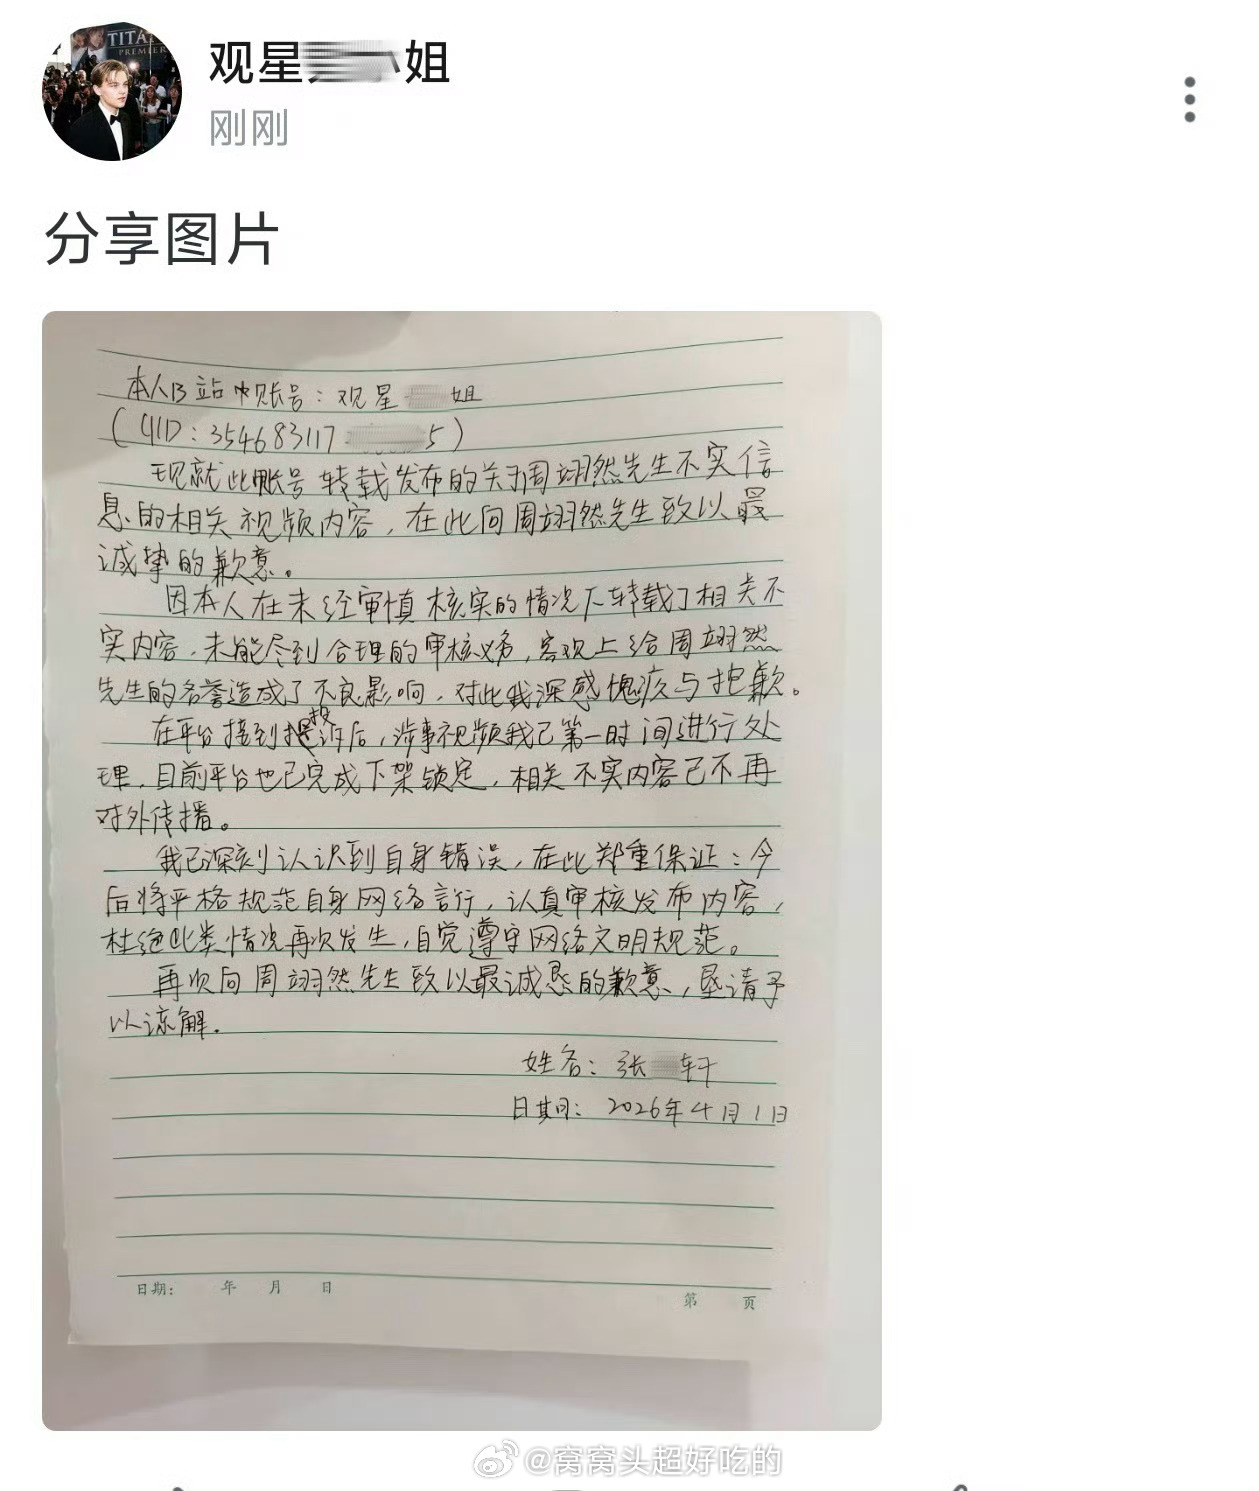 TITA
PREMIER
观星 姐
刚刚
分享图片
本人B站中账号：观星 姐
（UID：354683117 5）
现就此账号转载发布的关于周翊然先生不实信
息的相关视频内容，在此向周翊然先生致以最
诚挚的歉意。
因本人在未经审慎核实的情况下转载了相关不
实内容，未能尽到合理的审核义务，客观上给周翊然
先生的名誉造成了不良影响，对此我深感愧疚与抱歉。
在平台接到投诉后，涉事视频我已第一时间进行处
理，目前平台也已完成下架锁定，相关不实内容已不再
对外传播。
我已深刻认识到自身错误，在此郑重保证：今
后将严格规范自身网络言行，认真审核发布内容，
杜绝此类情况再次发生，自觉遵守网络文明规范。
再次向周翊然先生致以最诚恳的歉意，恳请予
以谅解.
姓名：张 轩
日期：2026年4月1日
日期： 年 月 日
第 页
@窝窝头超好吃的